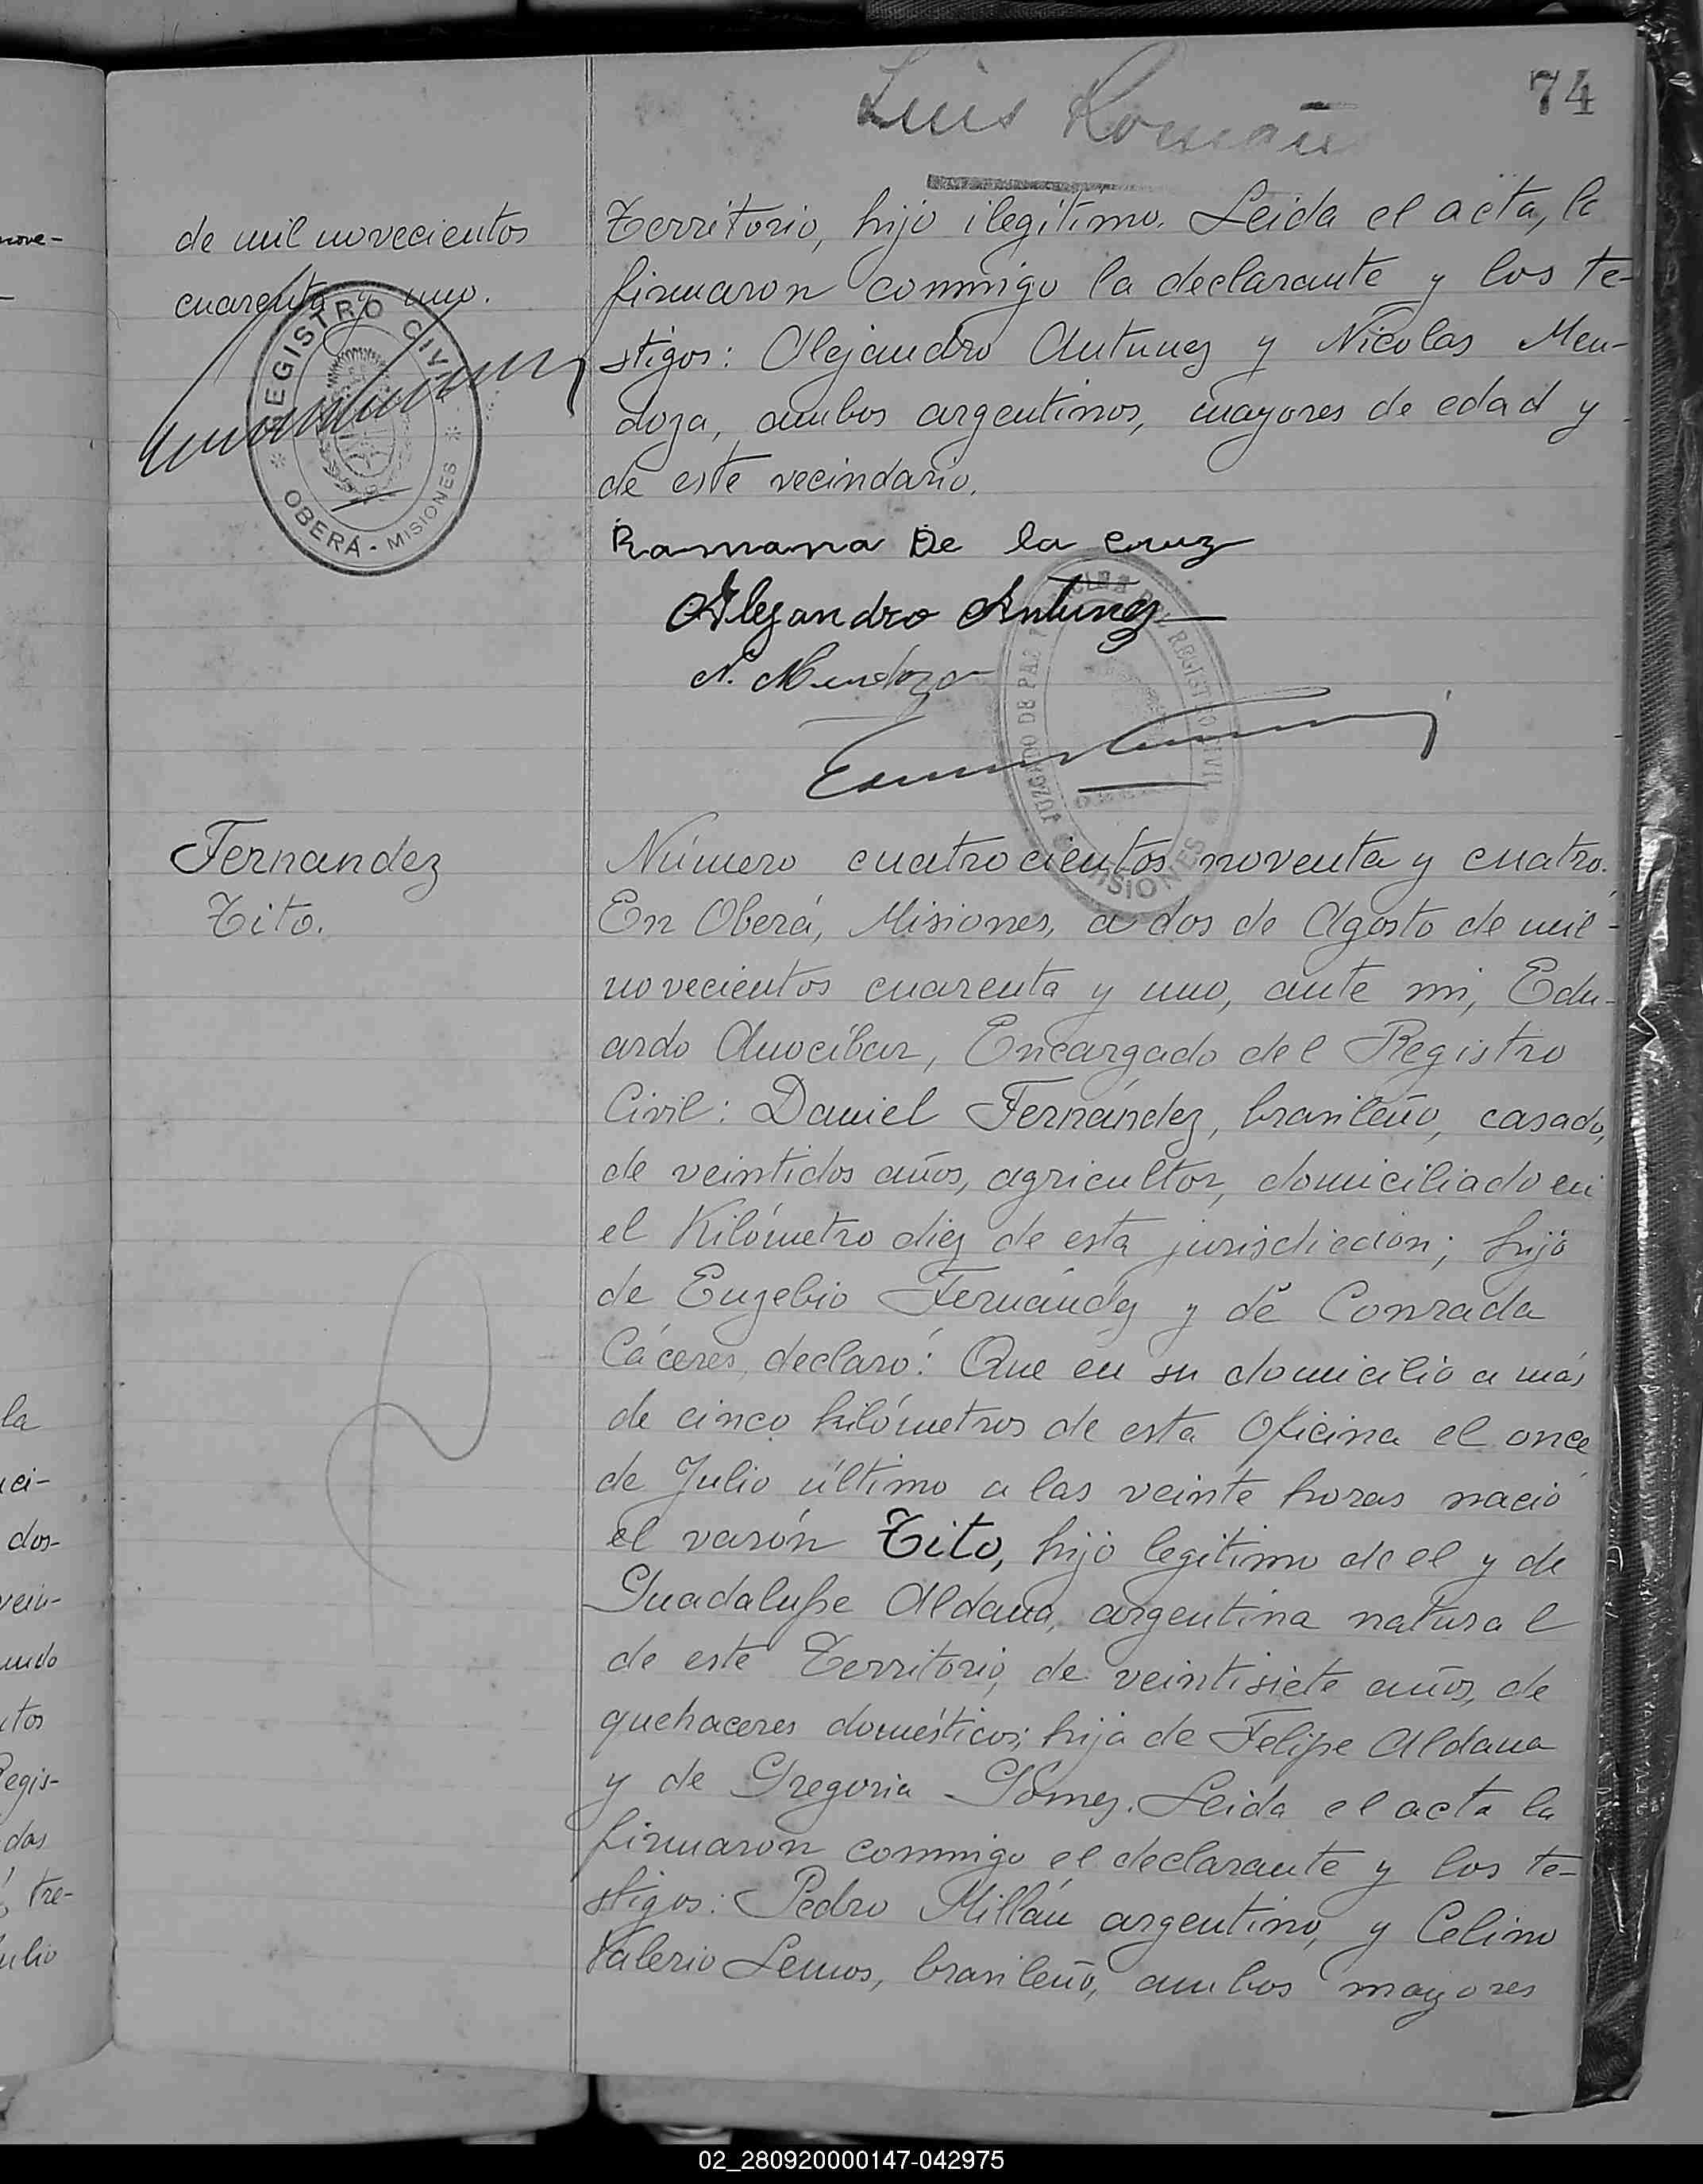 74
Luis Román
de mil novecientos
cuarenta y uno.
REGISTRO CIVIL
OBERÁ - MISIONES
Territorio, hijo ilegítimo. Leida el acta, la
firmaron conmigo la declarante y los te-
stigos: Alejandro Antunez y Nicolas Men-
doza, ambos argentinos, mayores de edad y
de este vecindario.
Ramona De la Cruz
Alejandro Antunez
N. Mendoza
JUZGADO DE PAZ REGISTRO CIVIL
MISIONES
Fernandez
Tito.
Número cuatrocientos noventa y cuatro.
En Oberá, Misiones, a dos de Agosto de mil
novecientos cuarenta y uno, ante mi, Edu-
ardo Anocíbar, Encargado del Registro
Civil: Daniel Fernández, brasileño, casado,
de veintidos años, agricultor, domiciliado en
el Kilómetro diez de esta jurisdiccion; hijo
de Eugebio Fernández y de Conrada
Cáceres, declaró: Que en su domicilio a más
de cinco kilómetros de esta Oficina el once
de Julio último a las veinte horas nació
el varón Tito, hijo legítimo de el y de
Guadalupe Aldana, argentina natural
de este Territorio, de veintisiete años, de
quehaceres domésticos; hija de Felipe Aldana
y de Gregoria Gómez. Leida el acta la
firmaron conmigo el declarante y los te-
stigos: Pedro Millán argentino, y Celino
Valerio Lemos, brasileño, ambos mayores
nove-
la
ci-
dos-
vein-
undo
itos
Regis-
das
tre-
ulio
02_280920000147-042975